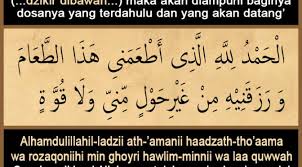 (...dzikir dibawah...) maka akan diampuni baginya
dosanya yang terdahulu dan yang akan datang'
الْحَمْدُ لِلَّهِ الَّذِى أَطْعَمَنِى هَذَا الطَّعَامَ
وَ رَزَقَنِيْهِ مِنْ غَيْرِحَوْلٍ مِنِّى وَلَا قُوَّةٍ
Alhamdulillahil-ladzii ath-'amanii haadzath-tho'aama
wa rozaqoniihi min ghoyri hawlim-minnii wa laa quwwah